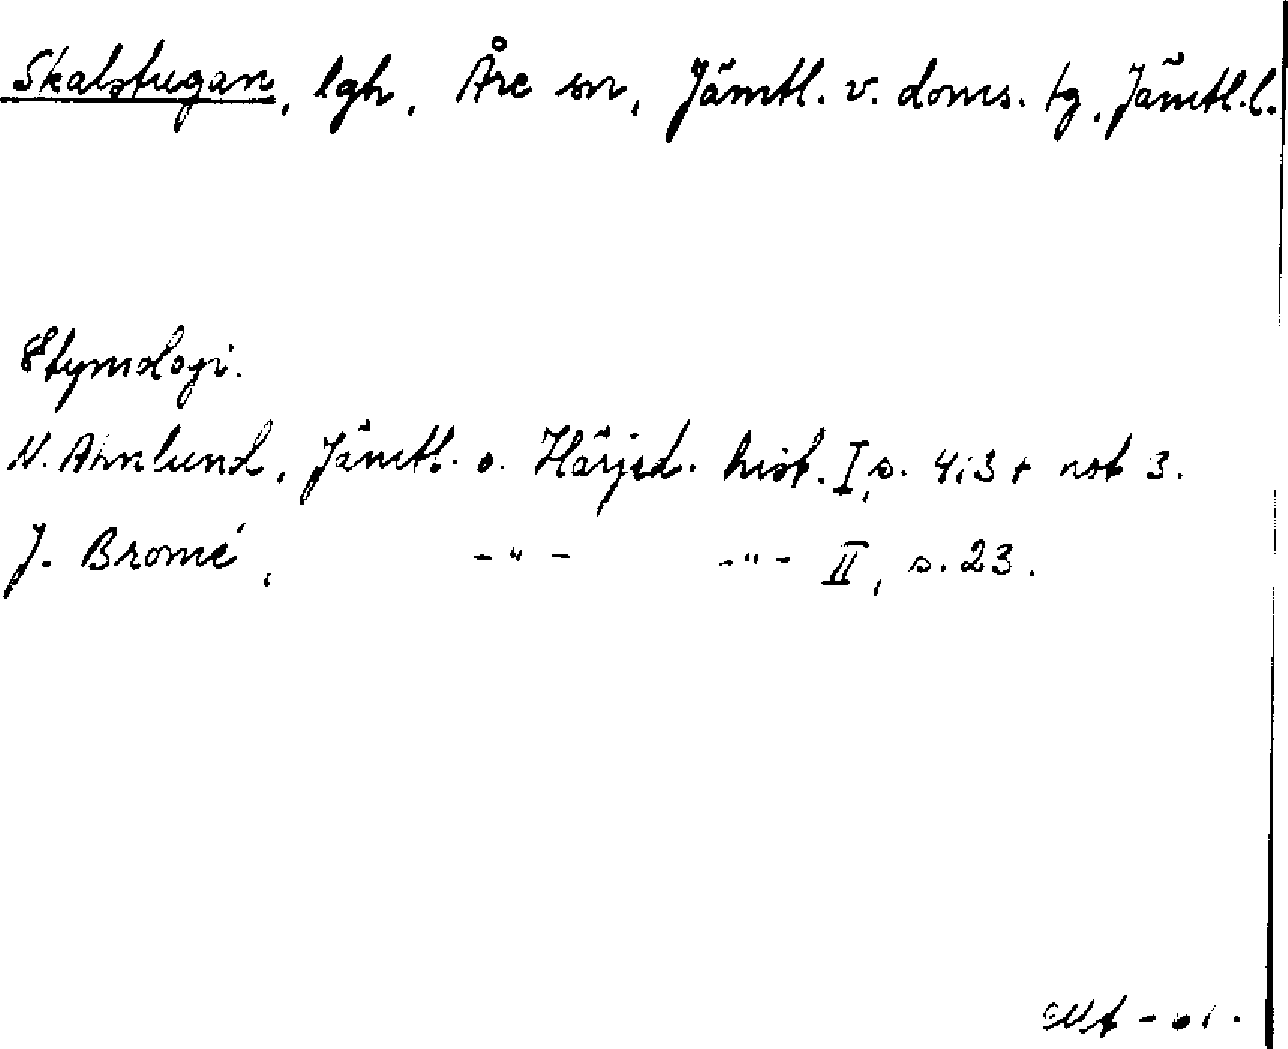 Skalstugan, lgh, Åre sn, Jämtl. v. doms. tg, Jämtl.l.
Etymologi.
N. Ahnlund, Jämtl. o. Härjed. hist. I, s. 413 + not 3.
J. Bromé, -"- -"- II, s. 23.